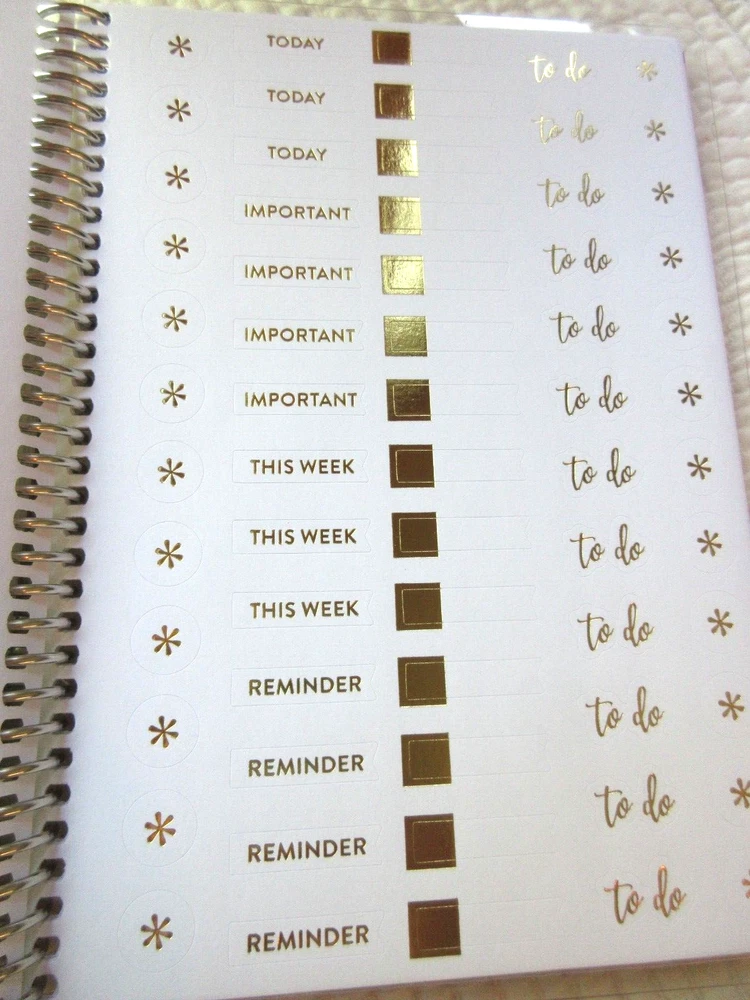 TODAY
TODAY
TODAY
IMPORTANT
IMPORTANT
IMPORTANT
IMPORTANT
THIS WEEK
THIS WEEK
THIS WEEK
REMINDER
REMINDER
REMINDER
REMINDER
to do
to do
to do
to do
to do
to do
to do
to do
to do
to do
to do
to do